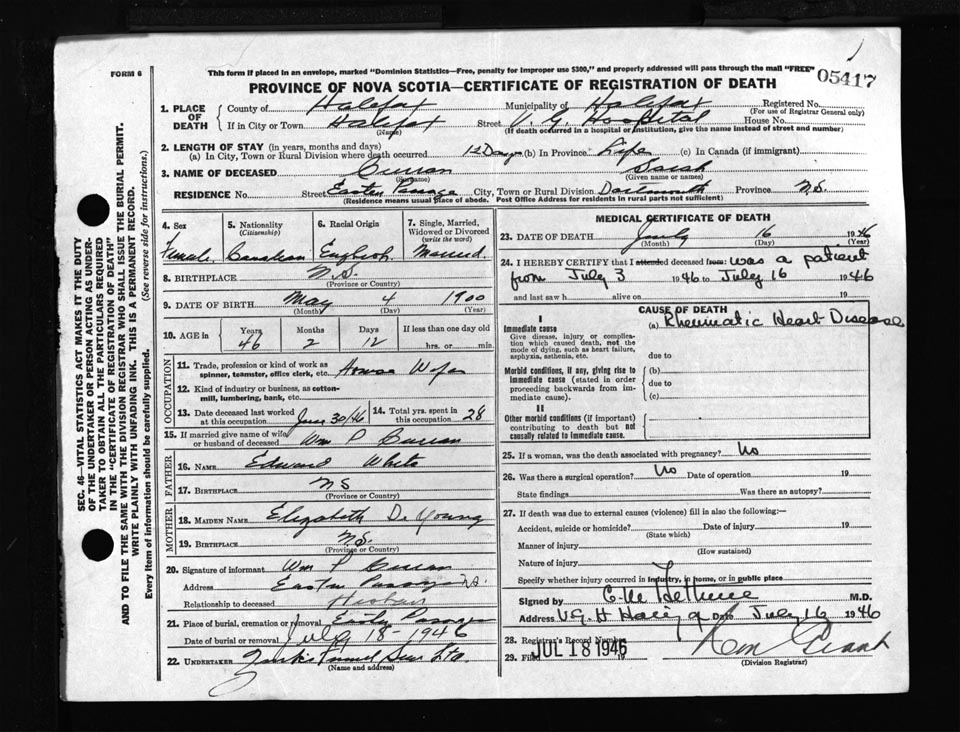 FORM 6
This form if placed in an envelope, marked "Dominion Statistics—Free, penalty for improper use $300," and properly addressed will pass through the mail "FREE"
05417
PROVINCE OF NOVA SCOTIA—CERTIFICATE OF REGISTRATION OF DEATH
1. PLACE OF DEATH
County of Halifax Municipality of Halifax Registered No.
(For use of Registrar General only)
If in City or Town Halifax Street V. G. Hospital House No.
(Name) (If death occurred in a hospital or institution, give the name instead of street and number)
2. LENGTH OF STAY (in years, months and days)
(a) In City, Town or Rural Division where death occurred 12 Days (b) In Province Life (c) In Canada (if immigrant)
3. NAME OF DECEASED Curran Sarah
(Surname) (Given name or names)
RESIDENCE No. Street Eastern Passage City, Town or Rural Division Dartmouth Province N.S.
(Residence means usual place of abode. Post Office Address for residents in rural parts not sufficient)
4. Sex Female
5. Nationality (Citizenship) Canadian
6. Racial Origin English
7. Single, Married, Widowed or Divorced (write the word) Married
8. BIRTHPLACE N.S.
(Province or Country)
9. DATE OF BIRTH May 4 1900
(Month) (Day) (Year)
10. AGE in Years Months Days If less than one day old
46 2 12 hrs. or min.
OCCUPATION
11. Trade, profession or kind of work as spinner, teamster, office clerk, etc. House Wife
12. Kind of industry or business, as cotton-mill, lumbering, bank, etc.
13. Date deceased last worked at this occupation June 30/46
14. Total yrs. spent in this occupation 28
15. If married give name of wife or husband of deceased Wm P Curran
FATHER
16. NAME Edward White
17. BIRTHPLACE NS
(Province or Country)
MOTHER
18. MAIDEN NAME Elizabeth De Young
19. BIRTHPLACE N.S.
(Province or Country)
20. Signature of informant Wm P Curran
Address Eastern Passage N.S.
Relationship to deceased Husban
21. Place of burial, cremation or removal Eastern Passage
Date of burial or removal July 18-1946
22. UNDERTAKER
(Name and address)
MEDICAL CERTIFICATE OF DEATH
23. DATE OF DEATH July 16 1946
(Month) (Day) (Year)
24. I HEREBY CERTIFY that I attended deceased from: was a patient
from July 3 1946 to July 16 1946
and last saw h alive on 19
CAUSE OF DEATH
I
Immediate cause (a) Rheumatic Heart Disease
Give disease, injury or complication which caused death, not the mode of dying, such as heart failure, asphyxia, asthenia, etc.
due to
Morbid conditions, if any, giving rise to immediate cause (stated in order proceeding backwards from immediate cause).
(b)
due to
(c)
II
Other morbid conditions (if important) contributing to death but not causally related to immediate cause.
25. If a woman, was the death associated with pregnancy? No
26. Was there a surgical operation? No Date of operation 19
State findings Was there an autopsy?
27. If death was due to external causes (violence) fill in also the following:—
Accident, suicide or homicide? Date of injury 19
(State which)
Manner of injury
(How sustained)
Nature of injury
Specify whether injury occurred in industry, in home, or in public place
Signed by M.D.
Address V.G.H Date July 16 1946
28. Registrar's Record Number
29. Filed JUL 18 1946 19
(Division Registrar)
SEC. 46—VITAL STATISTICS ACT MAKES IT THE DUTY
OF THE UNDERTAKER OR PERSON ACTING AS UNDER-
TAKER TO OBTAIN ALL THE PARTICULARS REQUIRED
IN THE "CERTIFICATE OF REGISTRATION OF DEATH"
AND TO FILE THE SAME WITH THE DIVISION REGISTRAR WHO SHALL ISSUE THE BURIAL PERMIT.
WRITE PLAINLY WITH UNFADING INK. THIS IS A PERMANENT RECORD.
Every item of information should be carefully supplied. (See reverse side for instructions.)